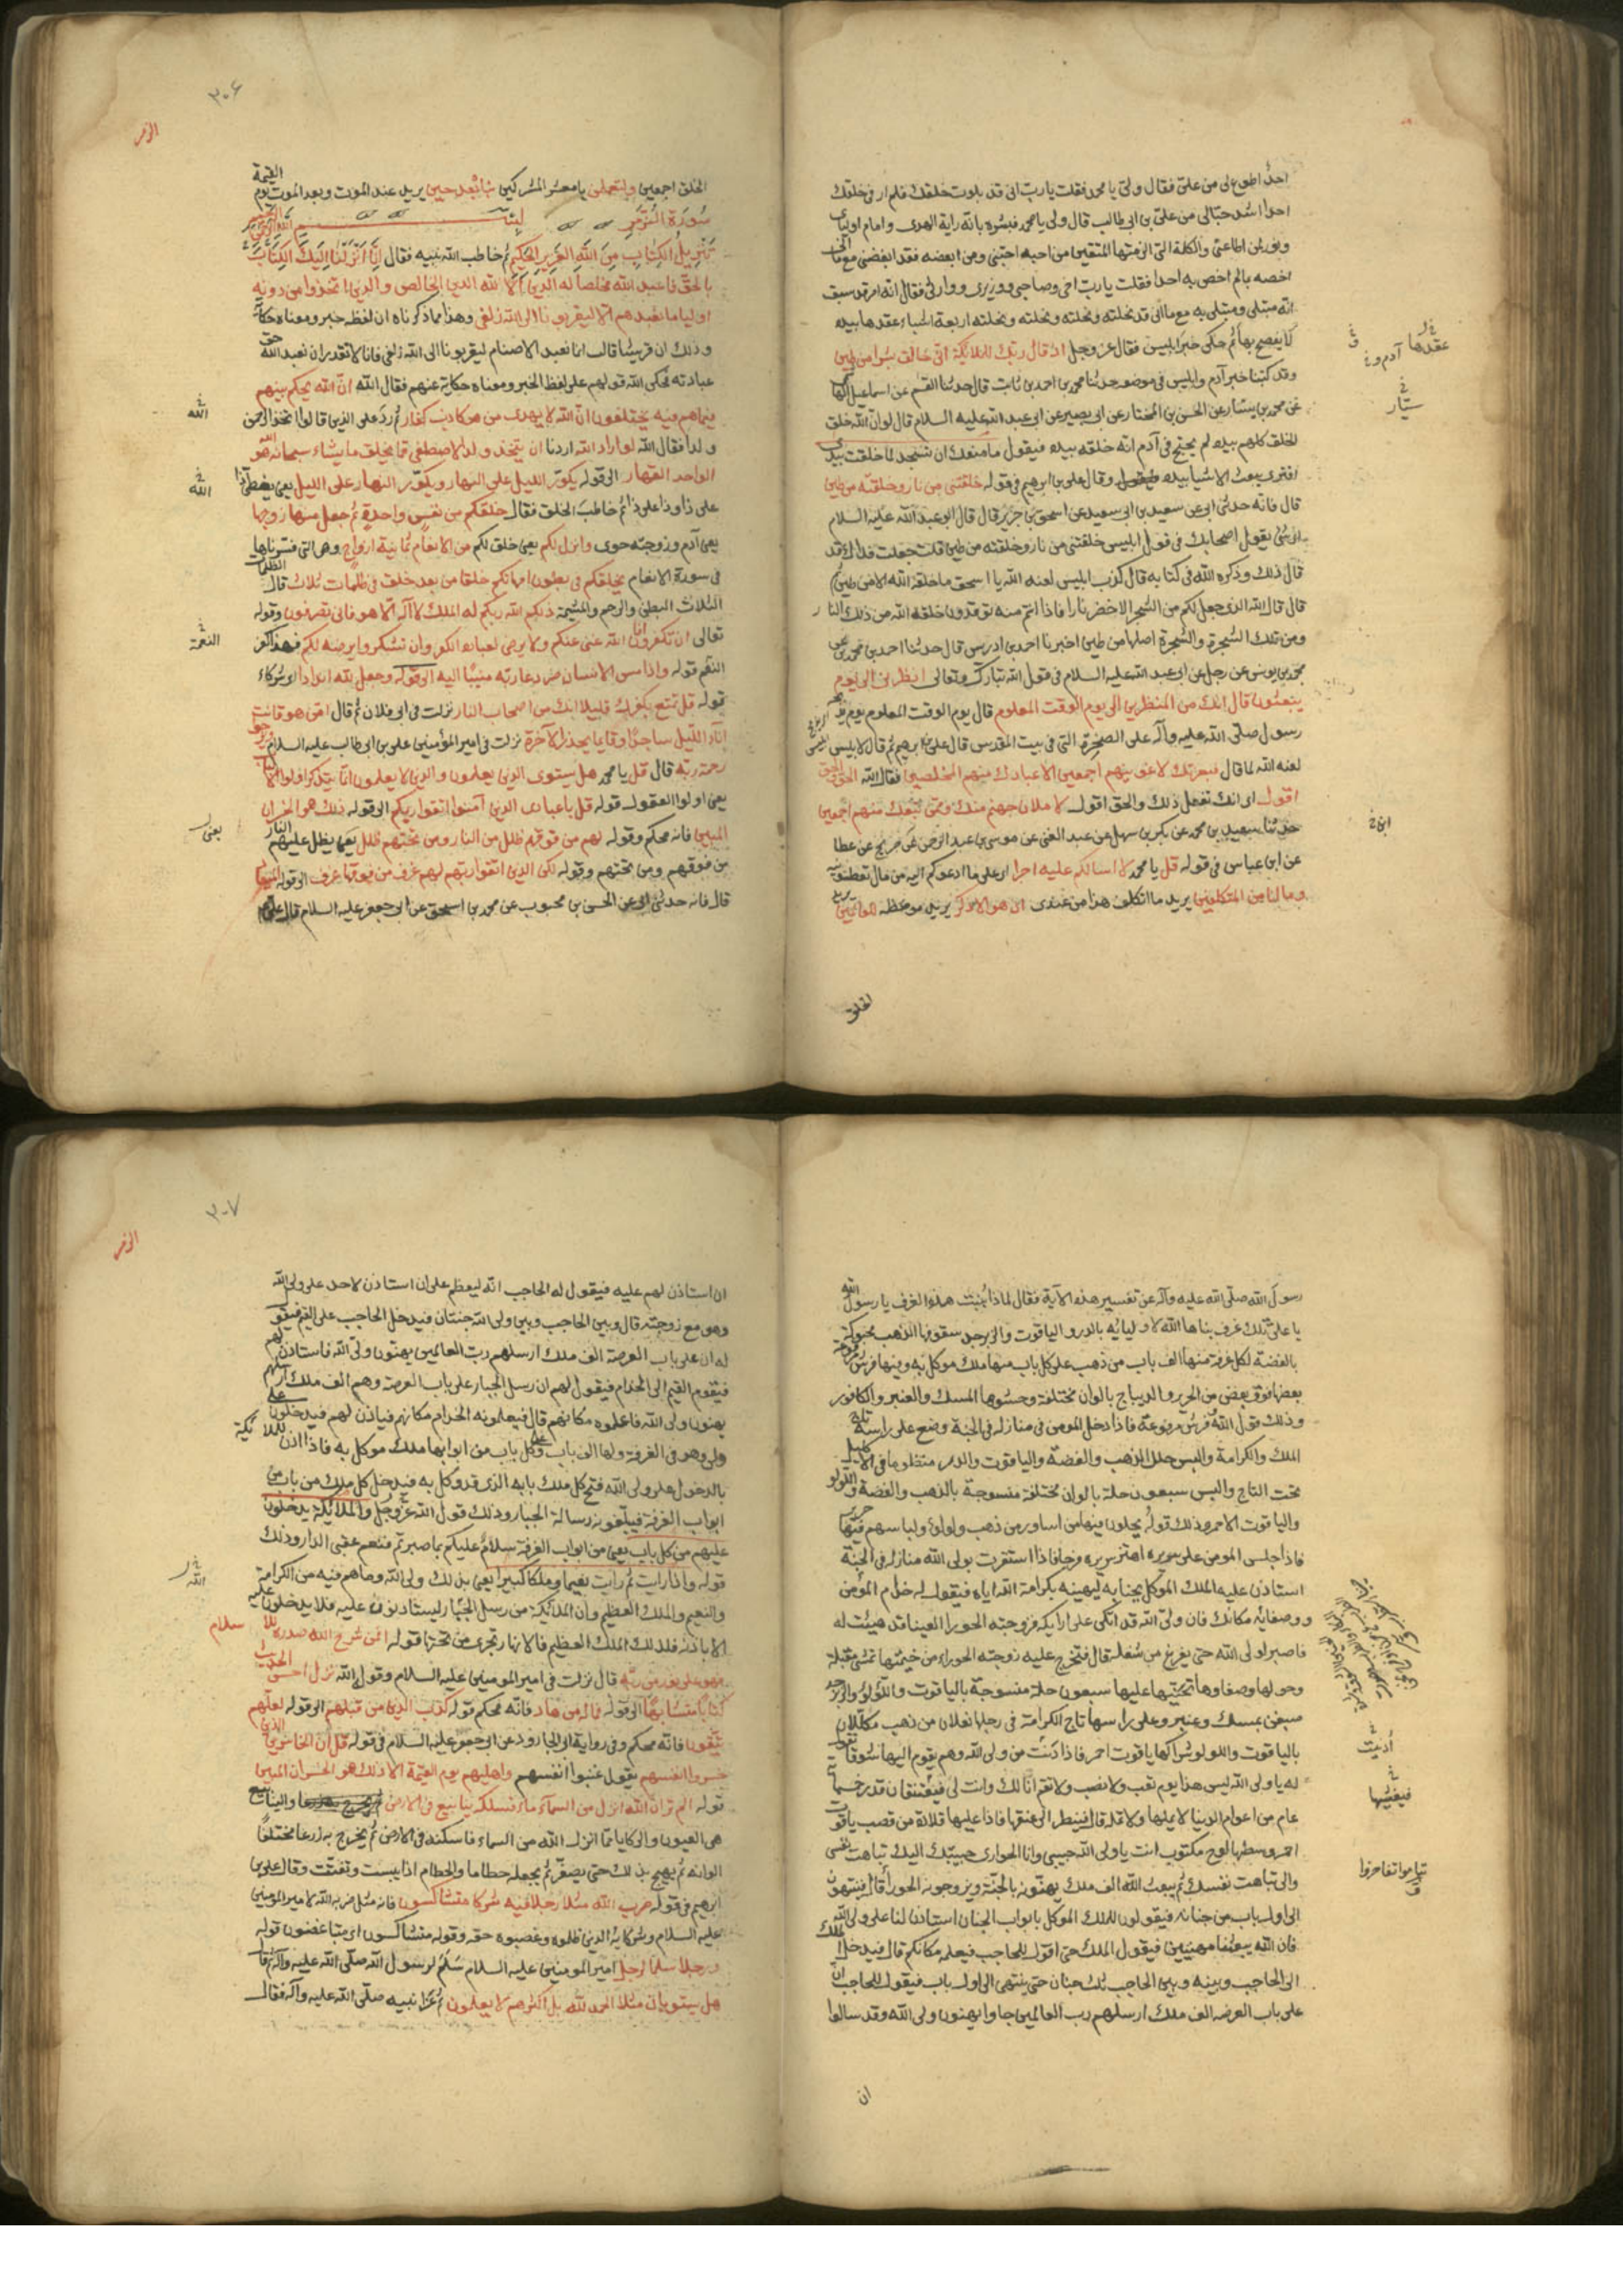 احدا اطوع لي من علي فقال ولي يا محمد فقلت يا رب اني قد بلوت خلقك فلم ار في خلقك
احدا اشد حبا لي من علي بن ابي طالب قال ولي يا محمد فبشره بانه راية الهدى وامام اوليائي
ونور لمن اطاعني والكلمة التي الزمتها المتقين من احبه احبني ومن ابغضه فقد ابغضني مع ما اني
اخصه بما لم اخص به احدا فقلت يا رب اخي وصاحبي ووزيري ووارثي فقال انه امر قد سبق
انه مبتلى ومبتلى به مع ما اني قد نحلته ونحلته ونحلته ونحلته اربعة اشياء عقدها بيده
لا يفصح بها ثم حكى خبر ابليس فقال عز وجل اذ قال ربك للملائكة اني خالق بشرا من طين
وقد كتبنا خبر آدم وابليس في موضعه حدثنا محمد بن احمد بن ثابت قال حدثنا القسم عن اسماعيل الهاشمي
عن محمد بن يسار عن الحسن بن المختار عن ابي بصير عن ابي عبد الله عليه السلام قال لو ان الله خلق
الخلق كلهم بيده لم يحتج في آدم انه خلقه بيده فيقول ما منعك ان تسجد لما خلقت بيدي
افترى يبعث الاشيا بيده وقال علي بن ابرهيم في قوله خلقتني من نار وخلقته من طين
قال فانه حدثني ابي عن سعيد بن ابي سعيد عن اسحق بن حريز قال قال ابو عبد الله عليه السلام
اي شئ يقول اصحابك في قول ابليس خلقتني من نار وخلقته من طين قلت جعلت فداك قد
قال ذلك وذكره الله في كتابه قال كذب ابليس لعنه الله يا اسحق ما خلقه الله الا من طين ثم
قال قال الله الذي جعل لكم من الشجر الاخضر نارا فاذا انتم منه توقدون خلقه الله من ذلك النار
ومن تلك الشجرة والشجرة اصلها من طين اخبرنا احمد بن ادريس قال حدثنا احمد بن محمد عن
محمد بن يونس عن رجل عن ابي عبد الله عليه السلام في قول الله تبارك وتعالى انظرني الى يوم
يبعثون قال انك من المنظرين الى يوم الوقت المعلوم قال يوم الوقت المعلوم يوم يذبحه
رسول صلى الله عليه وآله على الصخرة التي في بيت المقدس قال علي بن ابرهيم ثم قال لابليس
لعنه الله لما قال فبعزتك لاغوينهم اجمعين الا عبادك منهم المخلصين فقال الله الحق والحق
اقول اي انك تفعل ذلك والحق اقول لاملان جهنم منك وممن تبعك منهم اجمعين
حدثنا سعيد بن محمد عن بكر بن سهل عن عبد الغني عن موسى بن عبد الرحمن عن جريج عن عطا
عن ابن عباس في قوله قل يا محمد لا اسالكم عليه اجرا اي على ما ادعوكم اليه من مال تعطونيه
وما انا من المتكلفين يريد ما اتكلف هذا من عندي ان هو الا ذكر يريد موعظة للعالمين
عقدها
آدم و
سيّار
الخلق
٣٠٦
الزمر
الخلق اجمعين ولتعلمن يا معشر المشركين نبأه بعد حين يريد عند الموت وبعد الموت يوم القيمة
سورة الزمر بسم الله الرحمن الرحيم
تنزيل الكتاب من الله العزيز الحكيم ثم خاطب الله نبيه فقال انا انزلنا اليك الكتاب
بالحق فاعبد الله مخلصا له الدين الا لله الدين الخالص والذين اتخذوا من دونه
اوليا ما نعبدهم الا ليقربونا الى الله زلفى وهذا مما ذكرناه ان لفظه خبر ومعناه حكاية
وذلك ان قريشا قالت انما نعبد الاصنام ليقربونا الى الله زلفى فانا لا نقدر ان نعبد الله حق
عبادته فحكى الله قولهم على لفظ الخبر ومعناه حكاية عنهم فقال الله ان الله يحكم بينهم
فيما هم فيه يختلفون ان الله لا يهدي من هو كاذب كفار ثم رد على الذين قالوا اتخذ الرحمن
ولدا فقال الله لو اراد الله ان يتخذ ولدا لاصطفى مما يخلق ما يشاء سبحانه هو الله
الواحد القهار الى قوله يكور الليل على النهار ويكور النهار على الليل يعني يغطي ذا
على ذا وذا على ذا ثم خاطب الخلق فقال خلقكم من نفس واحدة ثم جعل منها زوجها
يعني آدم وزوجته حوى وانزل لكم يعني خلق لكم من الانعام ثمانية ازواج وهي التي فسرناها
في سورة الانعام يخلقكم في بطون امهاتكم خلقا من بعد خلق في ظلمات ثلاث قال الظلمات
الثلاث البطن والرحم والمشيمة ذلكم الله ربكم له الملك لا اله الا هو فانى تصرفون وقوله
تعالى ان تكفروا فان الله غني عنكم ولا يرضى لعباده الكفر وان تشكروا يرضه لكم فهذا كفر
النعم قوله واذا مس الانسان ضر دعا ربه منيبا اليه الى قوله وجعل لله اندادا اي شركاء
قوله قل تمتع بكفرك قليلا انك من اصحاب النار نزلت في ابي فلان ثم قال امن هو قانت
آناء الليل ساجدا وقائما يحذر الآخرة نزلت في امير المؤمنين علي بن ابي طالب عليه السلام ويرجو
رحمة ربه قال قل يا محمد هل يستوي الذين يعلمون والذين لا يعلمون انما يتذكر اولوا الالباب
يعني اولوا العقول قوله قل يا عبادي الذين آمنوا اتقوا ربكم الى قوله ذلك هو الخسران
المبين فانه محكم وقوله لهم من فوقهم ظلل من النار ومن تحتهم ظلل يعني يظل عليهم النار
من فوقهم ومن تحتهم وقوله لكن الذين اتقوا ربهم لهم غرف من فوقها غرف الى قوله الميعاد
قال فانه حدثني ابي عن الحسن بن محبوب عن محمد بن اسحق عن ابي جعفر عليه السلام قال سأل علي
الله
الله
النعمة
يعني
رسول الله صلى الله عليه وآله عن تفسير هذه الآية فقال لماذا بنيت هذه الغرف يا رسول الله
يا علي تلك غرف بناها الله لاوليائه بالدر والياقوت والزبرجد سقوفها الذهب محبوكة
بالفضة لكل غرفة منها الف باب من ذهب على كل باب منها ملك موكل به وفيها فرش مرفوعة
بعضها فوق بعض من الحرير والديباج بالوان مختلفة وحشوها المسك والعنبر والكافور
وذلك قول الله وفرش مرفوعة فاذا دخل المومن في منازله في الجنة وضع على راسه تاج
الملك والكرامة والبس حلل الذهب والفضة والياقوت والدر منظوما في الاكليل
تحت التاج والبس سبعون حلة بالوان مختلفة منسوجة بالذهب والفضة واللولو
والياقوت الاحمر وذلك قوله يحلون فيها من اساور من ذهب ولولوا ولباسهم فيها حرير
فاذا جلس المومن على سريره اهتز سريره فرحا فاذا استقرت بولي الله منازله في الجنة
استاذن عليه الملك الموكل بجنانه ليهنيه بكرامة الله اياه فيقول له خدام المؤمن
ووصفائه مكانك فان ولي الله قد اتكى على ارايكه فزوجته الحورا العينا قد هيئت له
فاصبر لولي الله حتى يفرغ من شغله قال فتخرج عليه زوجته الحوراء من خيمتها تمشي مقبلة
وحولها وصفاوها تحيتها عليها سبعون حلة منسوجة بالياقوت واللؤلؤ والزبرجد
صبغن بمسك وعنبر وعلى راسها تاج الكرامة في رجلها نعلان من ذهب مكللان
بالياقوت واللولو شراكها ياقوت احمر فاذا دنت من ولي الله وهم يقوم اليها شوقا تقول
له يا ولي الله ليس هذا يوم تعب ولا نصب ولا تقم انا لك وانت لي فيعتنقان قدر خمسمائة
عام من اعوام الدنيا لا يملها ولا تمله قال فينظر الى عنقها فاذا عليها قلادة من قصب ياقوت
احمر وسطها لوح مكتوب انت يا ولي الله حبيبي وانا الحوارى حبيبتك اليك تباهت نفسي
والي تباهت نفسك ثم يبعث الله الف ملك يهنونه بالجنة ويزوجونه الحورا قال فينتهون
الى اول باب من جنانه فيقولون للملك الموكل بابواب الجنان استاذن لنا على ولي الله
فان الله بعثنا مهنيين فيقول الملك حتى اقول للحاجب فيعلمه مكانكم قال فيدخل الملك
الى الحاجب وبينه وبين الحاجب ثلث جنان حتى ينتهي الى اول باب فيقول للحاجب ان
على باب العرصة الف ملك ارسلهم رب العالمين جاوا يهنون ولي الله وقد سالوا
ان
٣٠٧
الزمر
ان استاذن لهم عليه فيقول له الحاجب انه ليعظم علي ان استاذن لاحد على ولي الله
وهو مع زوجته قال وبين الحاجب وبين ولي الله جنتان فيدخل الحاجب على القيم فيقول
له ان على باب العرصة الف ملك ارسلهم رب العالمين يهنون ولي الله فاستاذن لهم
فيقوم القيم الى الخدام فيقول لهم ان رسل الجبار على باب العرصة وهم الف ملك ارسلهم
يهنون ولي الله فاعلموه مكانهم قال فيعلمونه الخدام مكانهم فياذن لهم فيدخلون على
ولي وهو في الغرفة ولها الف باب وعلى كل باب من ابوابها ملك موكل به فاذا اذن للملائكة
بالدخول على ولي الله فتح كل ملك بابه الذي قد وكل به فيدخل كل ملك من باب من
ابواب الغرفة فيبلغونه رسالة الجبار وذلك قول الله عز وجل والملائكة يدخلون
عليهم من كل باب يعني من ابواب الغرفة سلام عليكم بما صبرتم فنعم عقبى الدار وذلك
قوله واذا رايت ثم رايت نعيما وملكا كبيرا يعني بذلك ولي الله وما هم فيه من الكرامة
والنعيم والملك العظيم وان الملائكة من رسل الجبار ليستاذنون عليه فلا يدخلون عليه
الا باذنه فلذلك الملك العظيم فالانهار تجري من تحتها قوله افمن شرح الله صدره للاسلام
فهو على نور من ربه قال نزلت في امير المومنين عليه السلام وقول الله نزل احسن الحديث
كتابا متشابها الى قوله فما له من هاد فانه محكم قوله كذب الذين من قبلهم الى قوله لعلهم
يتقون فانه محكم وفي رواية ابي الجارود عن ابي جعفر عليه السلام في قوله قل ان الخاسرين الذين
خسروا انفسهم يقول غبنوا انفسهم واهليهم يوم القيمة الا ذلك هو الخسران المبين
قوله الم تر ان الله انزل من السماء ماء فسلكه ينابيع في الارض والينابيع
هي العيون والركايا مما انزل الله من السماء فاسكنه في الارض ثم يخرج به زرعا مختلفا
الوانه ثم يهيج بذلك حتى يصفر ثم يجعله حطاما والحطام اذا يبست وتفتتت وقال علي بن
ابرهيم في قوله ضرب الله مثلا رجلا فيه شركاء متشاكسون فانه مثل ضربه الله لامير المومنين
عليه السلام وشركائه الذين ظلموه وغصبوه حقه وقوله متشاكسون اي متباغضون قوله
ورجلا سلما لرجل امير المومنين عليه السلام سلم لرسول الله صلى الله عليه وآله ثم قال
هل يستويان مثلا الحمد لله بل اكثرهم لا يعلمون ثم عزا نبيه صلى الله عليه وآله فقال
الله